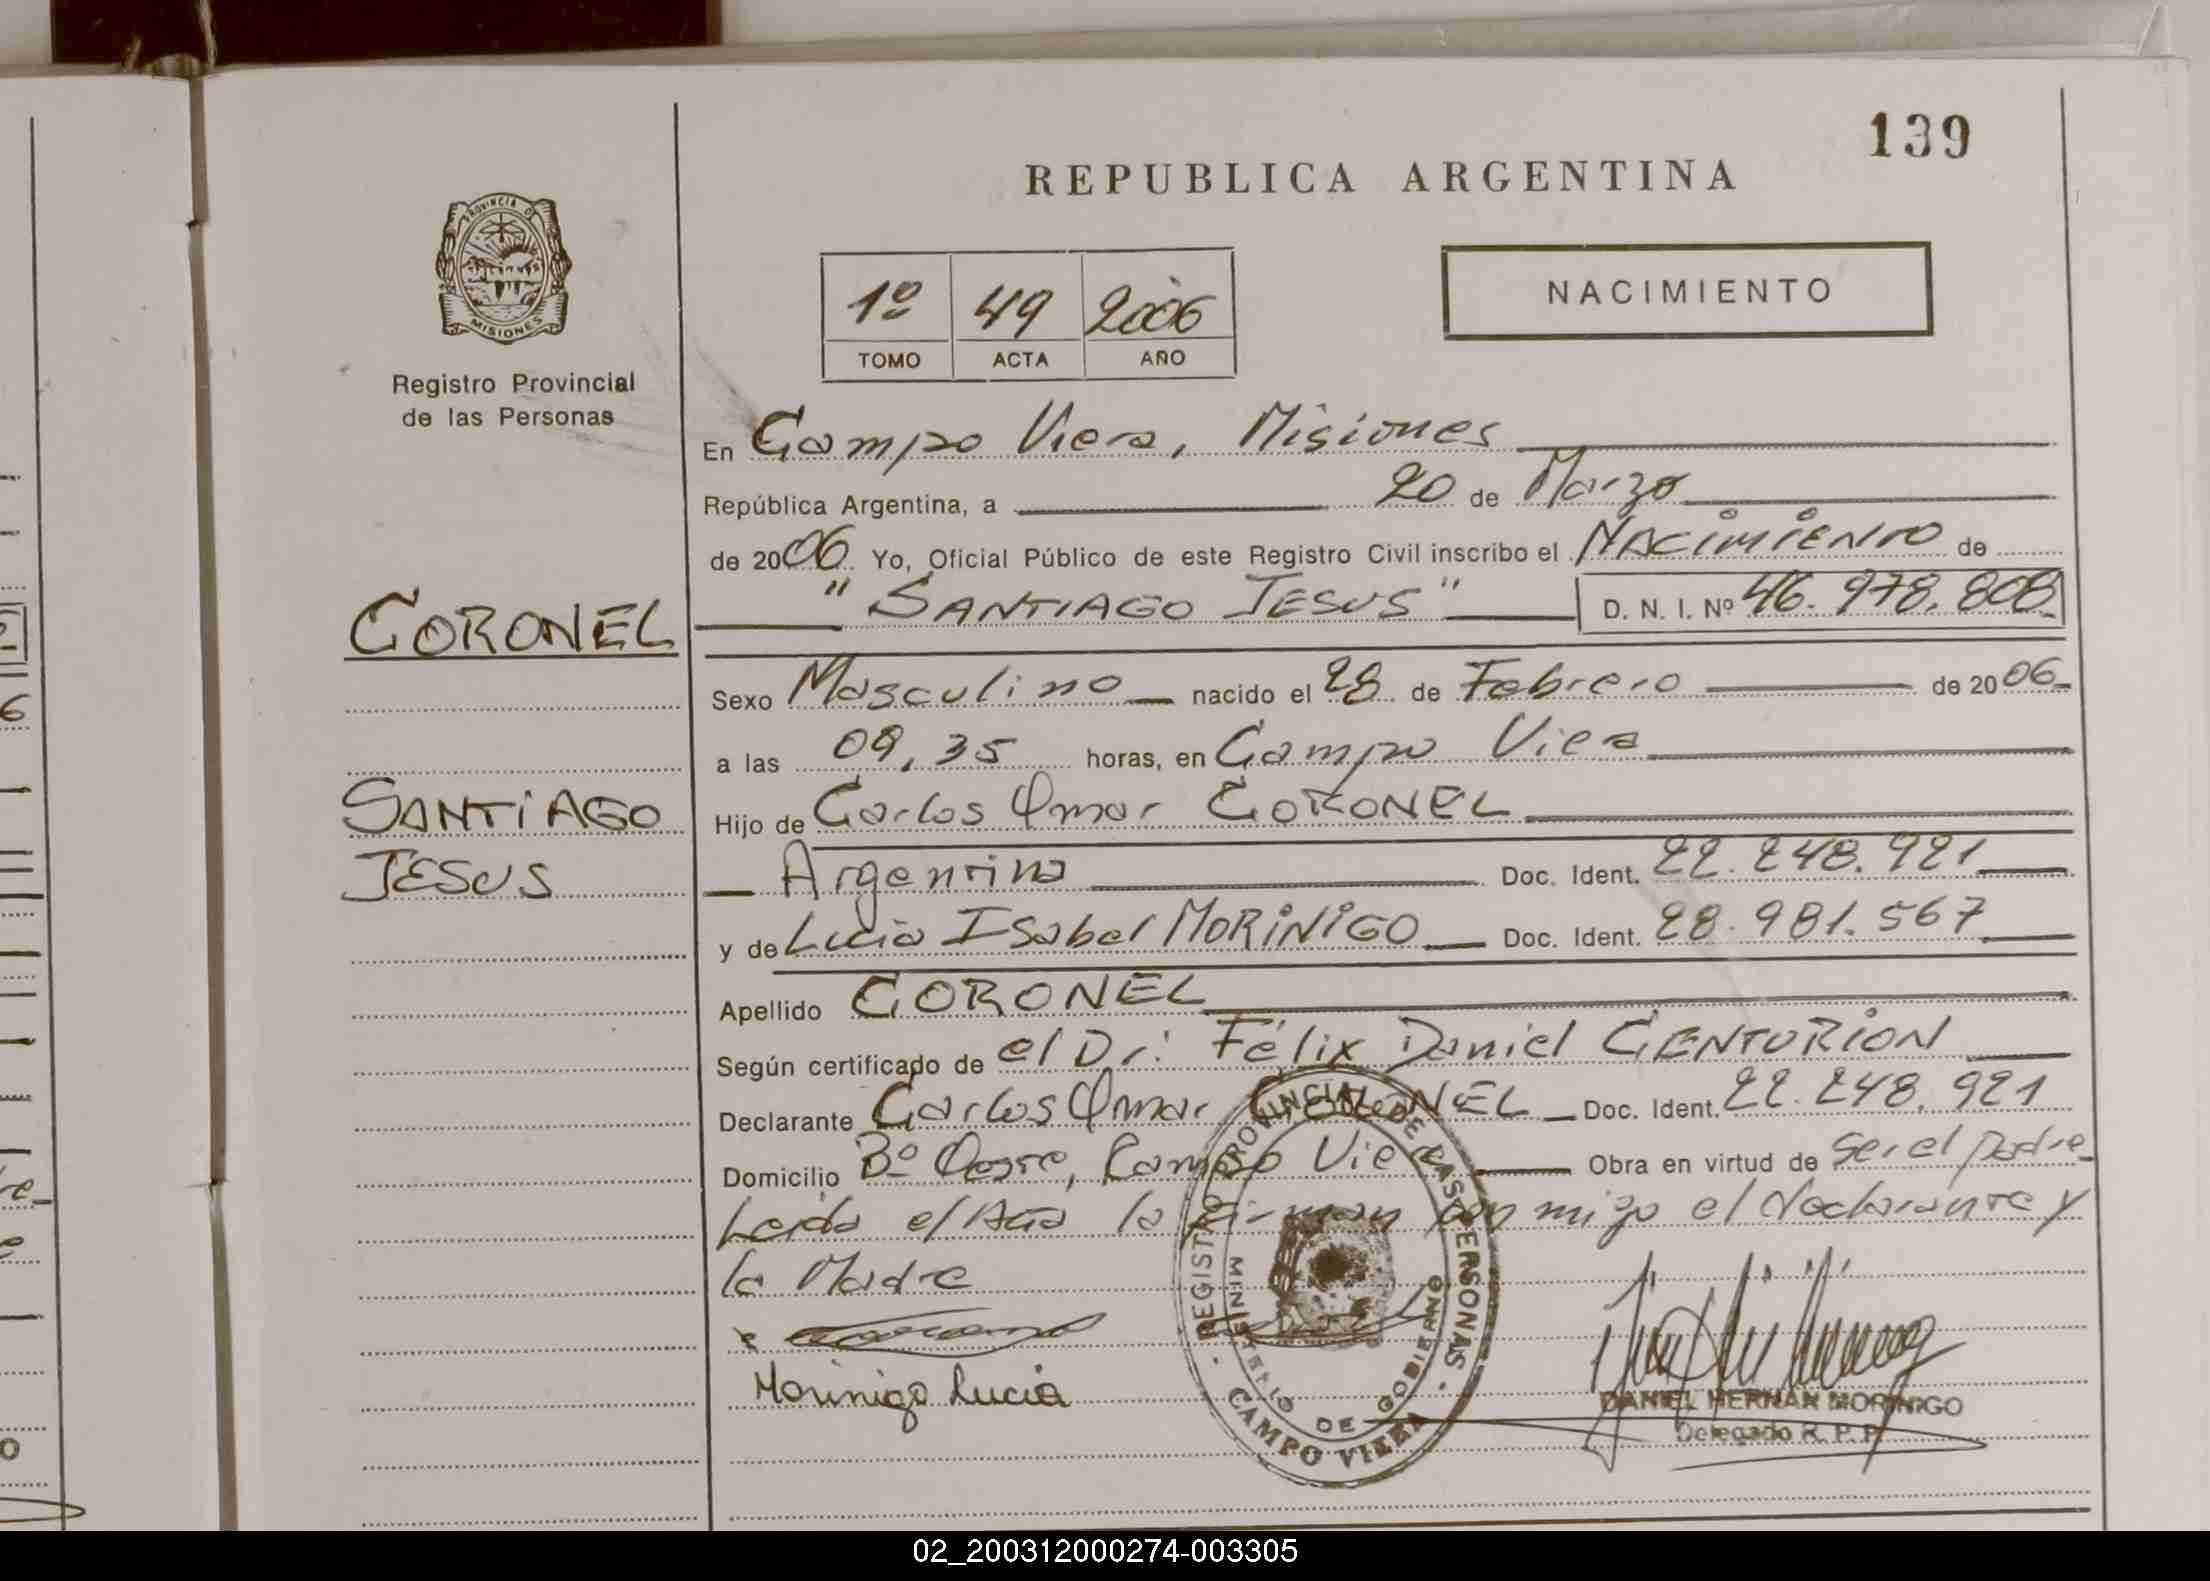 139
REPUBLICA ARGENTINA
PROVINCIA DE
MISIONES
Registro Provincial
de las Personas
1º 49 2006
TOMO ACTA AÑO
NACIMIENTO
En Campo Viera, Misiones
República Argentina, a 20 de Marzo
de 2006 Yo, Oficial Público de este Registro Civil inscribo el NACIMIENTO de
"SANTIAGO JESUS" D. N. I. Nº 46.978.808
CORONEL
Sexo Masculino nacido el 28 de Febrero de 2006
a las 09,35 horas, en Campo Viera
SANTIAGO
Hijo de Carlos Omar CORONEL
JESUS
Argentina Doc. Ident. 22.248.921
y de Lucia Isabel MORINIGO Doc. Ident. 28.981.567
Apellido CORONEL
Según certificado de el Dr. Félix Daniel CENTURION
Declarante Carlos Omar CORONEL Doc. Ident. 22.248.921
Domicilio Bº Oeste, Campo Viera Obra en virtud de ser el padre
Leida el Acta la firman con migo el declarante y
la Madre
Morinigo Lucia
REGISTRO PROVINCIAL DE LAS PERSONAS
MINISTERIO DE GOBIERNO
CAMPO VIERA
DANIEL HERNAN MORINIGO
Delegado R. P. P.
02_200312000274-003305